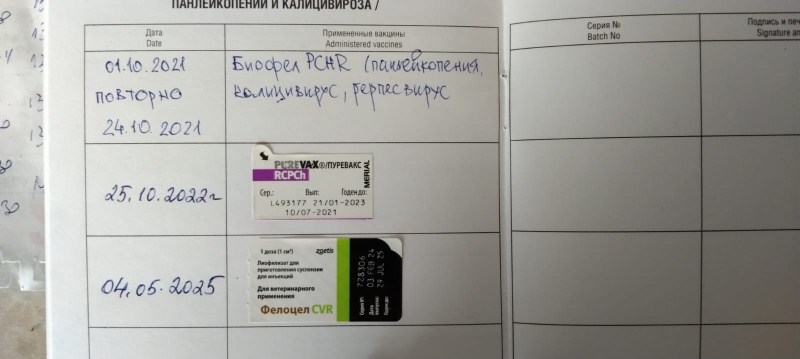 ПАНЛЕЙКОПЕНИИ И КАЛИЦИВИРОЗА /
Дата
Date
Примененные вакцины
Administered vaccines
Серия №
Batch No
Подпись и печ
Signature an
01.10.2021
повторно
24.10.2021
Биофел PCHR (панлейкопения,
калицивирус, герпесвирус
25.10.2022г
PUREVAX®/ПУРЕВАКС
RCPCh
MERIAL
Сер.: Вып: Годен до:
L493177 21/01-2023
10/07-2021
04.05.2025
1 доза (1 см³) zoetis
Лиофилизат для
приготовления суспензии
для инъекций
Для ветеринарного
применения
Фелоцел CVR
Серия №: 728306
Дата выпуска: 03 FEB 24
Годен до: 29 JUL 25